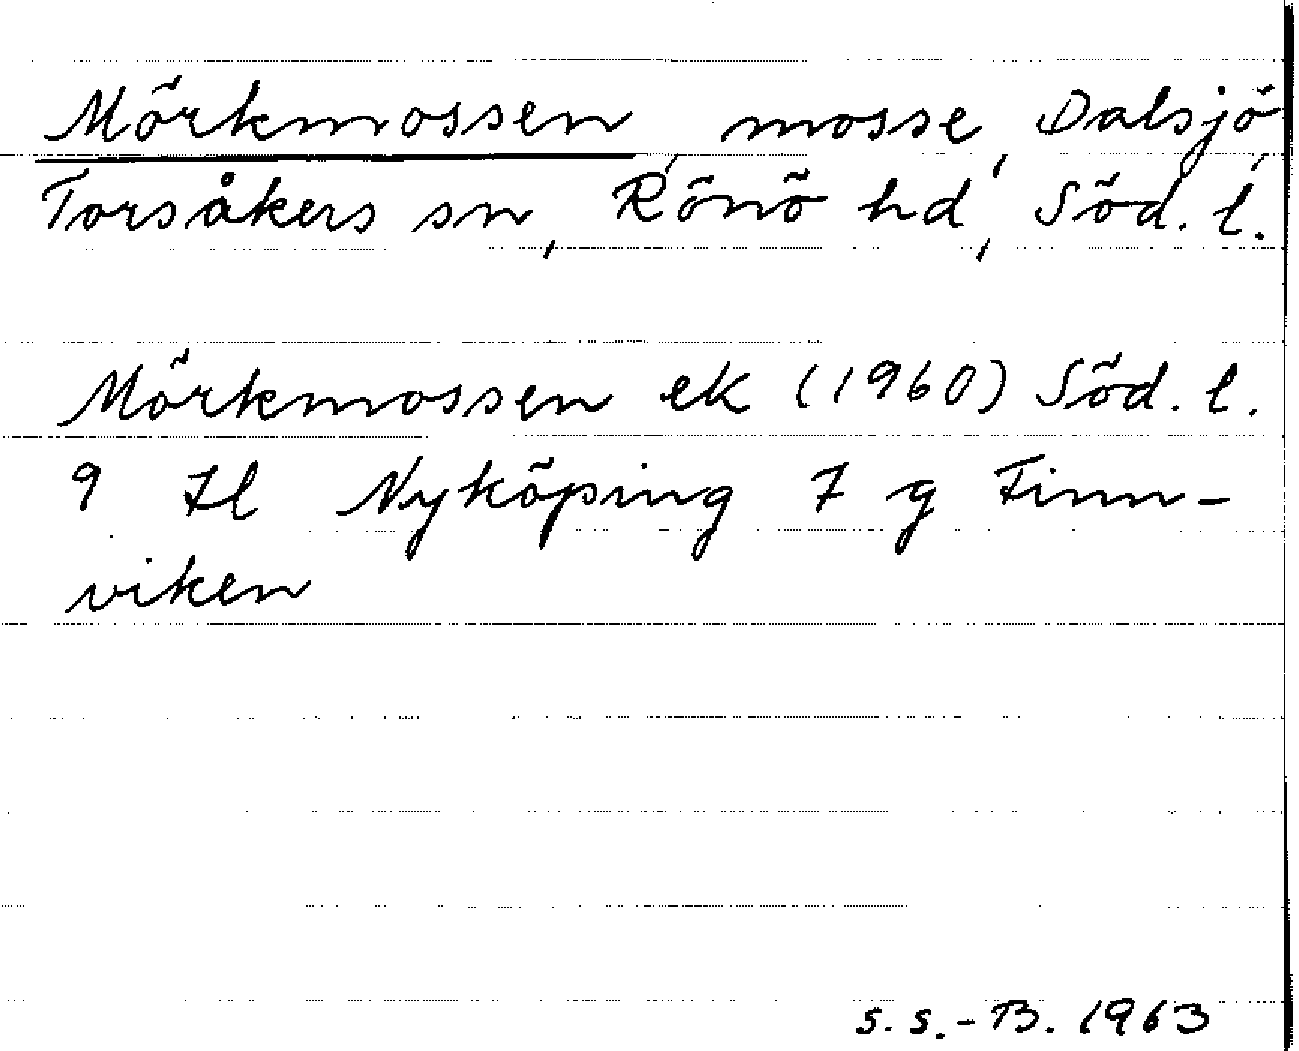 Mörkmossen, mosse, Dalsjö,
Torsåkers sn, Rönö hd, Söd. l.
Mörkmossen ek (1960) Söd. l.
9 Il Nyköping 7 g Finn-
viken
S. S.-B. 1963